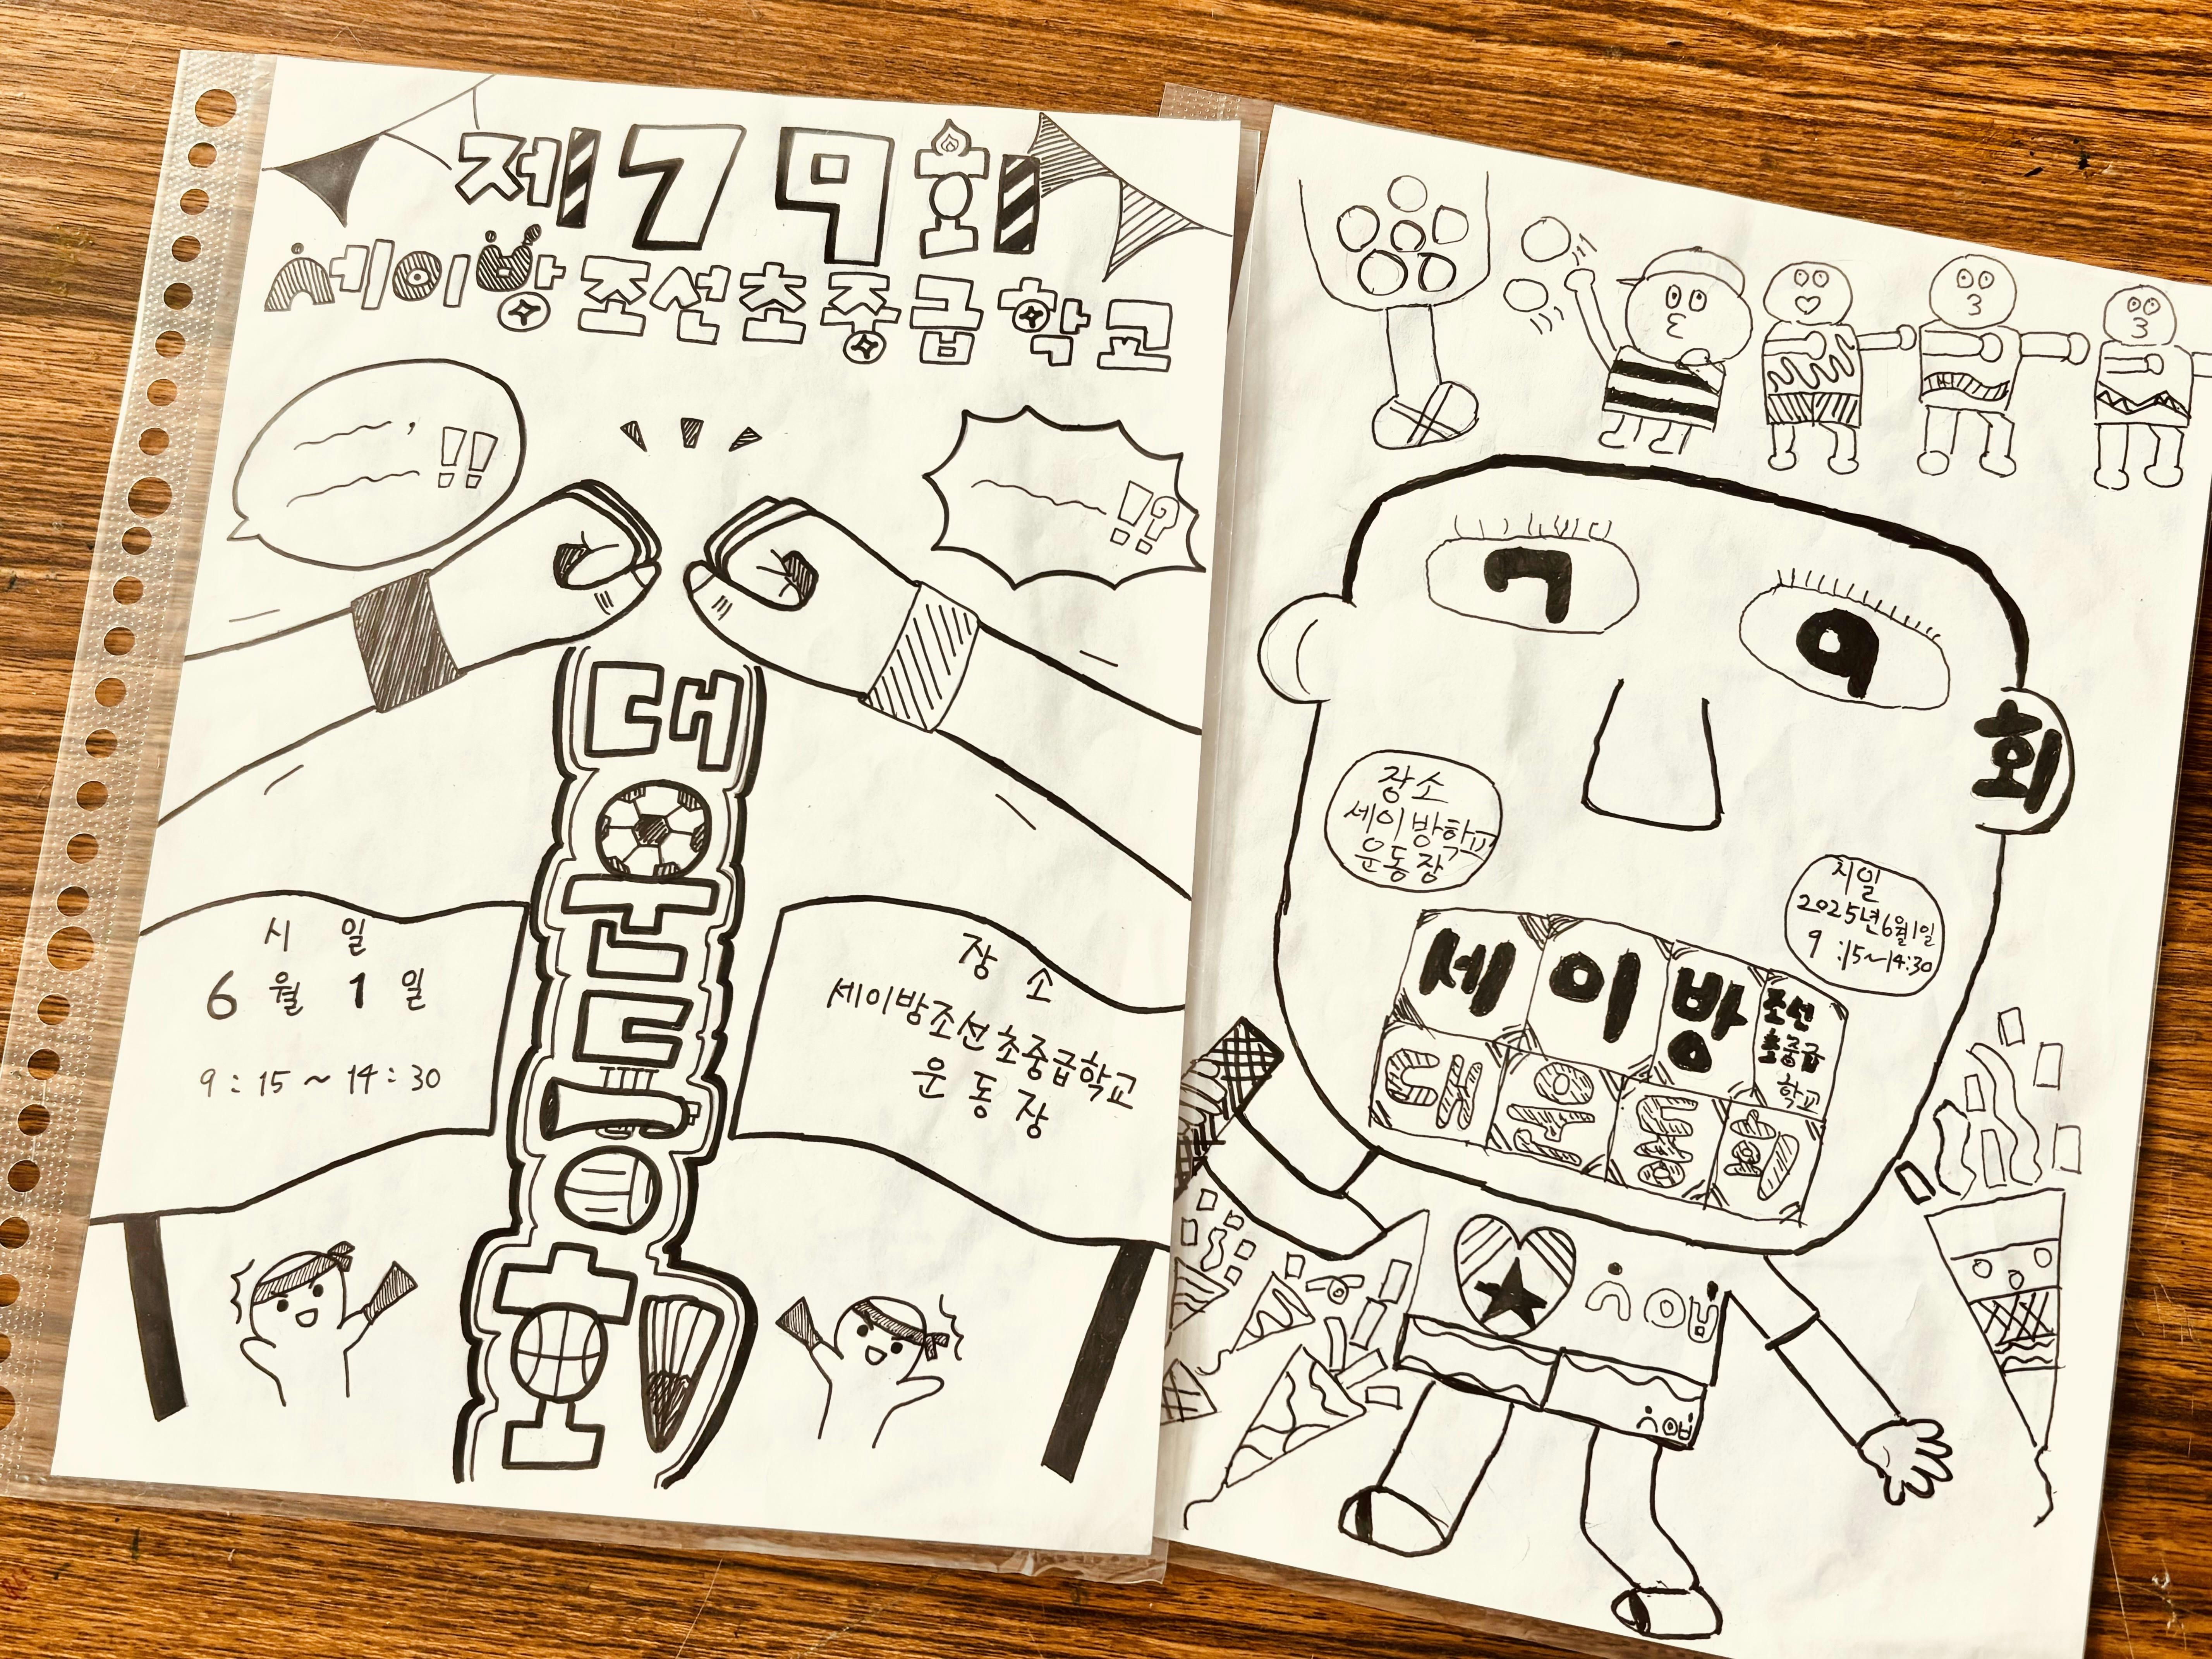 제79회
세이방조선초중급학교
!!
!!?
대운동회
시 일
6월 1일
9:15~14:30
장 소
세이방조선초중급학교
운동장
79
회
장소
세이방학교
운동장
시일
2025년6월1일
9:15~14:30
세이방
조선
초중급
학교
대운동회
ㅅㅇㅂ
ㅅㅇㅂ